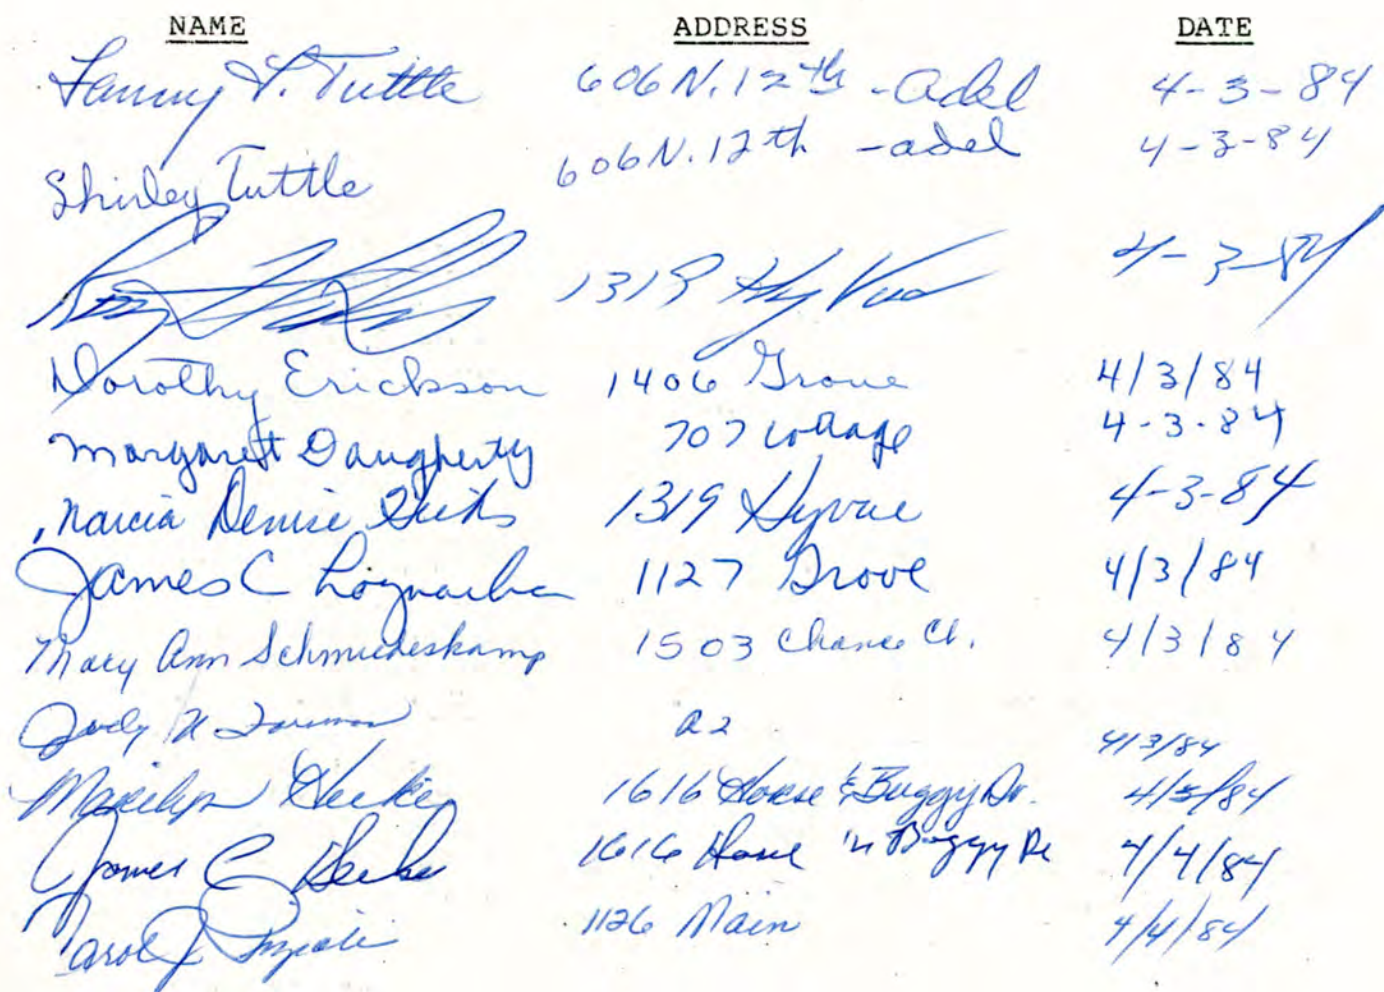 NAME ADDRESS DATE
Lanny L. Tuttle 606 N. 12th - Adel 4-3-84
Shirley Tuttle 606 N. 12th - Adel 4-3-84
1319 Hy Vue 4-3-84
Dorothy Erickson 1406 Grove 4/3/84
Margarett Daugherty 707 Cottage 4-3-84
Marcia Denise 1319 Hyvue 4-3-84
James C 1127 Grove 4/3/84
Mary Ann Schmiedeskamp 1503 Chance Ct. 4/3/84
Judy 4/3/84
Marilyn 1616 Horse & Buggy Dr. 4/3/84
James C 1616 Horse 'n Buggy Dr 4/4/84
Carol J 1126 Main 4/4/84